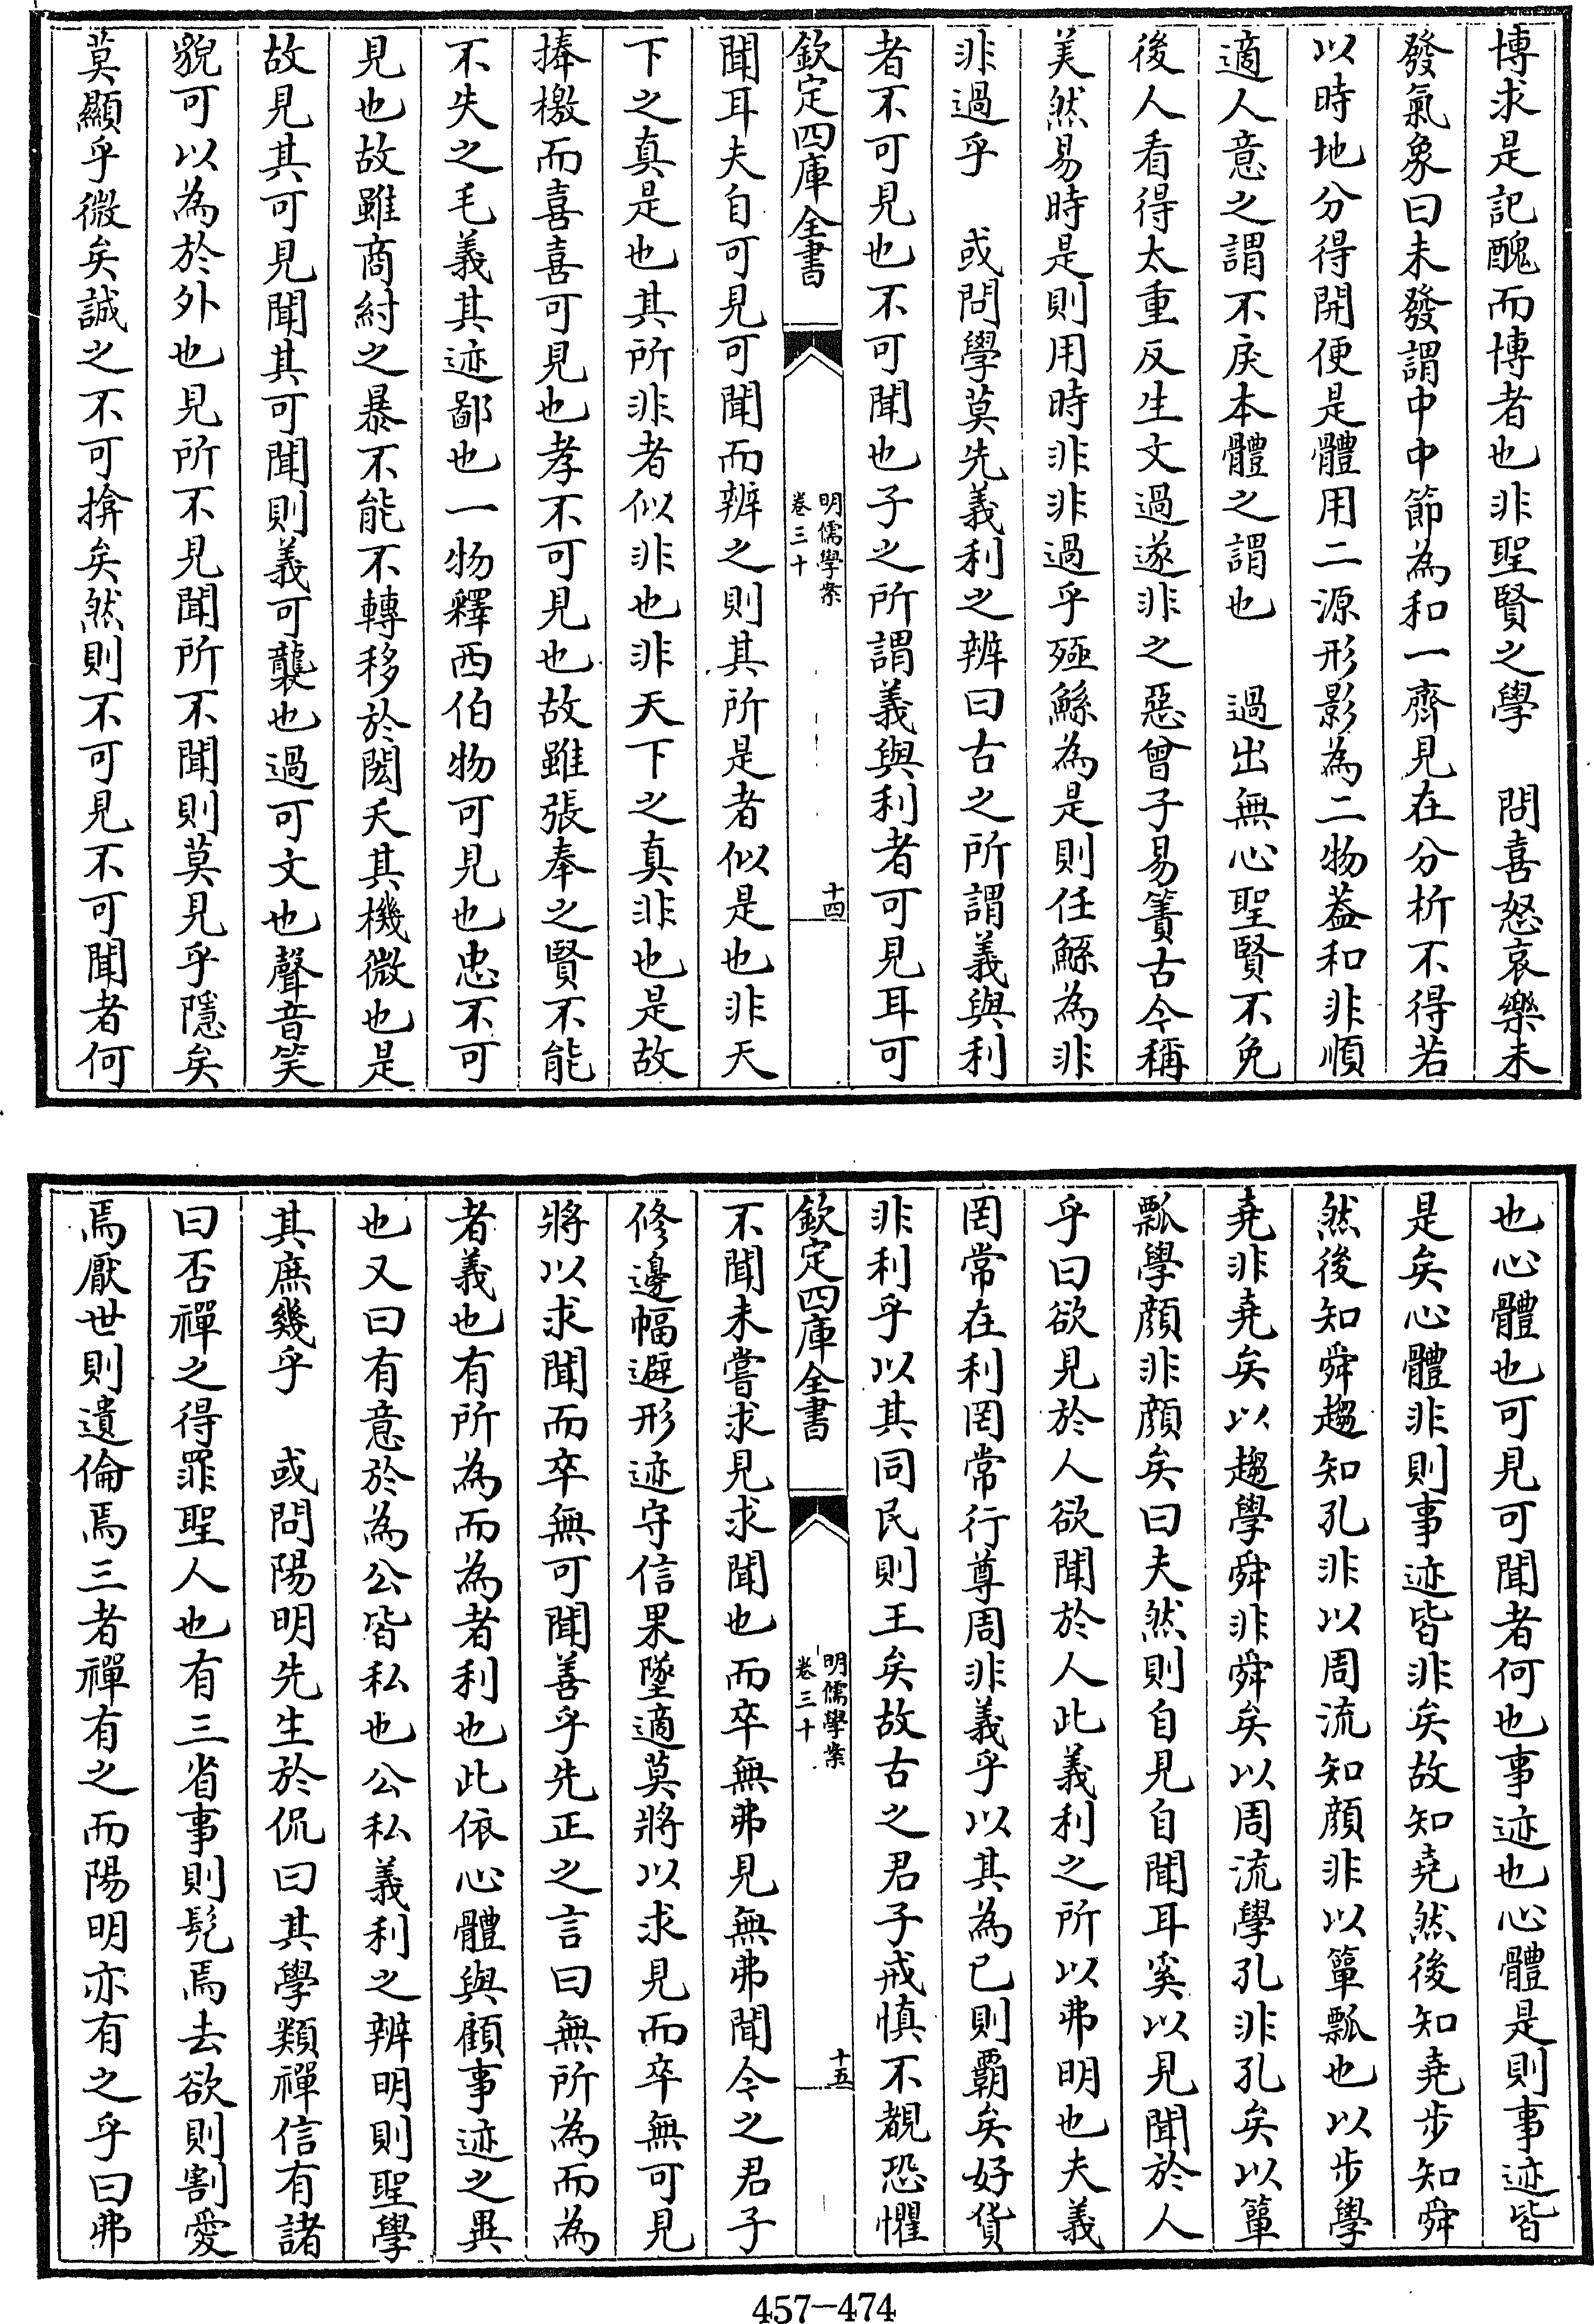 博求是記醜而博者也非聖賢之學　問喜怒哀樂未
發氣象曰未發謂中中節為和一齊見在分析不得若
以時地分得開便是體用二源形影為二物葢和非順
適人意之謂不戾本體之謂也　過出無心聖賢不免
後人看得太重反生文過遂非之惡曾子易簀古今稱
美然易時是則用時非非過乎殛鯀為是則任鯀為非
非過乎　或問學莫先義利之辨曰古之所謂義與利
者不可見也不可聞也子之所謂義與利者可見耳可
欽定四庫全書
明儒學案
卷三十
十四
聞耳夫自可見可聞而辨之則其所是者似是也非天
下之真是也其所非者似非也非天下之真非也是故
捧檄而喜喜可見也孝不可見也故雖張奉之賢不能
不失之毛義其迹鄙也一物釋西伯物可見也忠不可
見也故雖商紂之暴不能不轉移於閎夭其機微也是
故見其可見聞其可聞則義可襲也過可文也聲音笑
貌可以為於外也見所不見聞所不聞則莫見乎隱矣
莫顯乎微矣誠之不可揜矣然則不可見不可聞者何
也心體也可見可聞者何也事迹也心體是則事迹皆
是矣心體非則事迹皆非矣故知堯然後知堯步知舜
然後知舜趨知孔非以周流知顔非以簞瓢也以步學
堯非堯矣以趨學舜非舜矣以周流學孔非孔矣以簞
瓢學顔非顔矣曰夫然則自見自聞耳奚以見聞於人
乎曰欲見於人欲聞於人此義利之所以弗明也夫義
罔常在利罔常行尊周非義乎以其為已則覇矣好貨
非利乎以其同民則王矣故古之君子戒慎不覩恐懼
欽定四庫全書
明儒學案
卷三十
十五
不聞未嘗求見求聞也而卒無弗見無弗聞今之君子
修邊幅避形迹守信果墜適莫將以求見而卒無可見
將以求聞而卒無可聞善乎先正之言曰無所為而為
者義也有所為而為者利也此依心體與顧事迹之異
也又曰有意於為公皆私也公私義利之辨明則聖學
其庶幾乎　或問陽明先生於侃曰其學類禪信有諸
曰否禪之得罪聖人也有三省事則髡焉去欲則割愛
焉厭世則遺倫焉三者禪有之而陽明亦有之乎曰弗
457—474